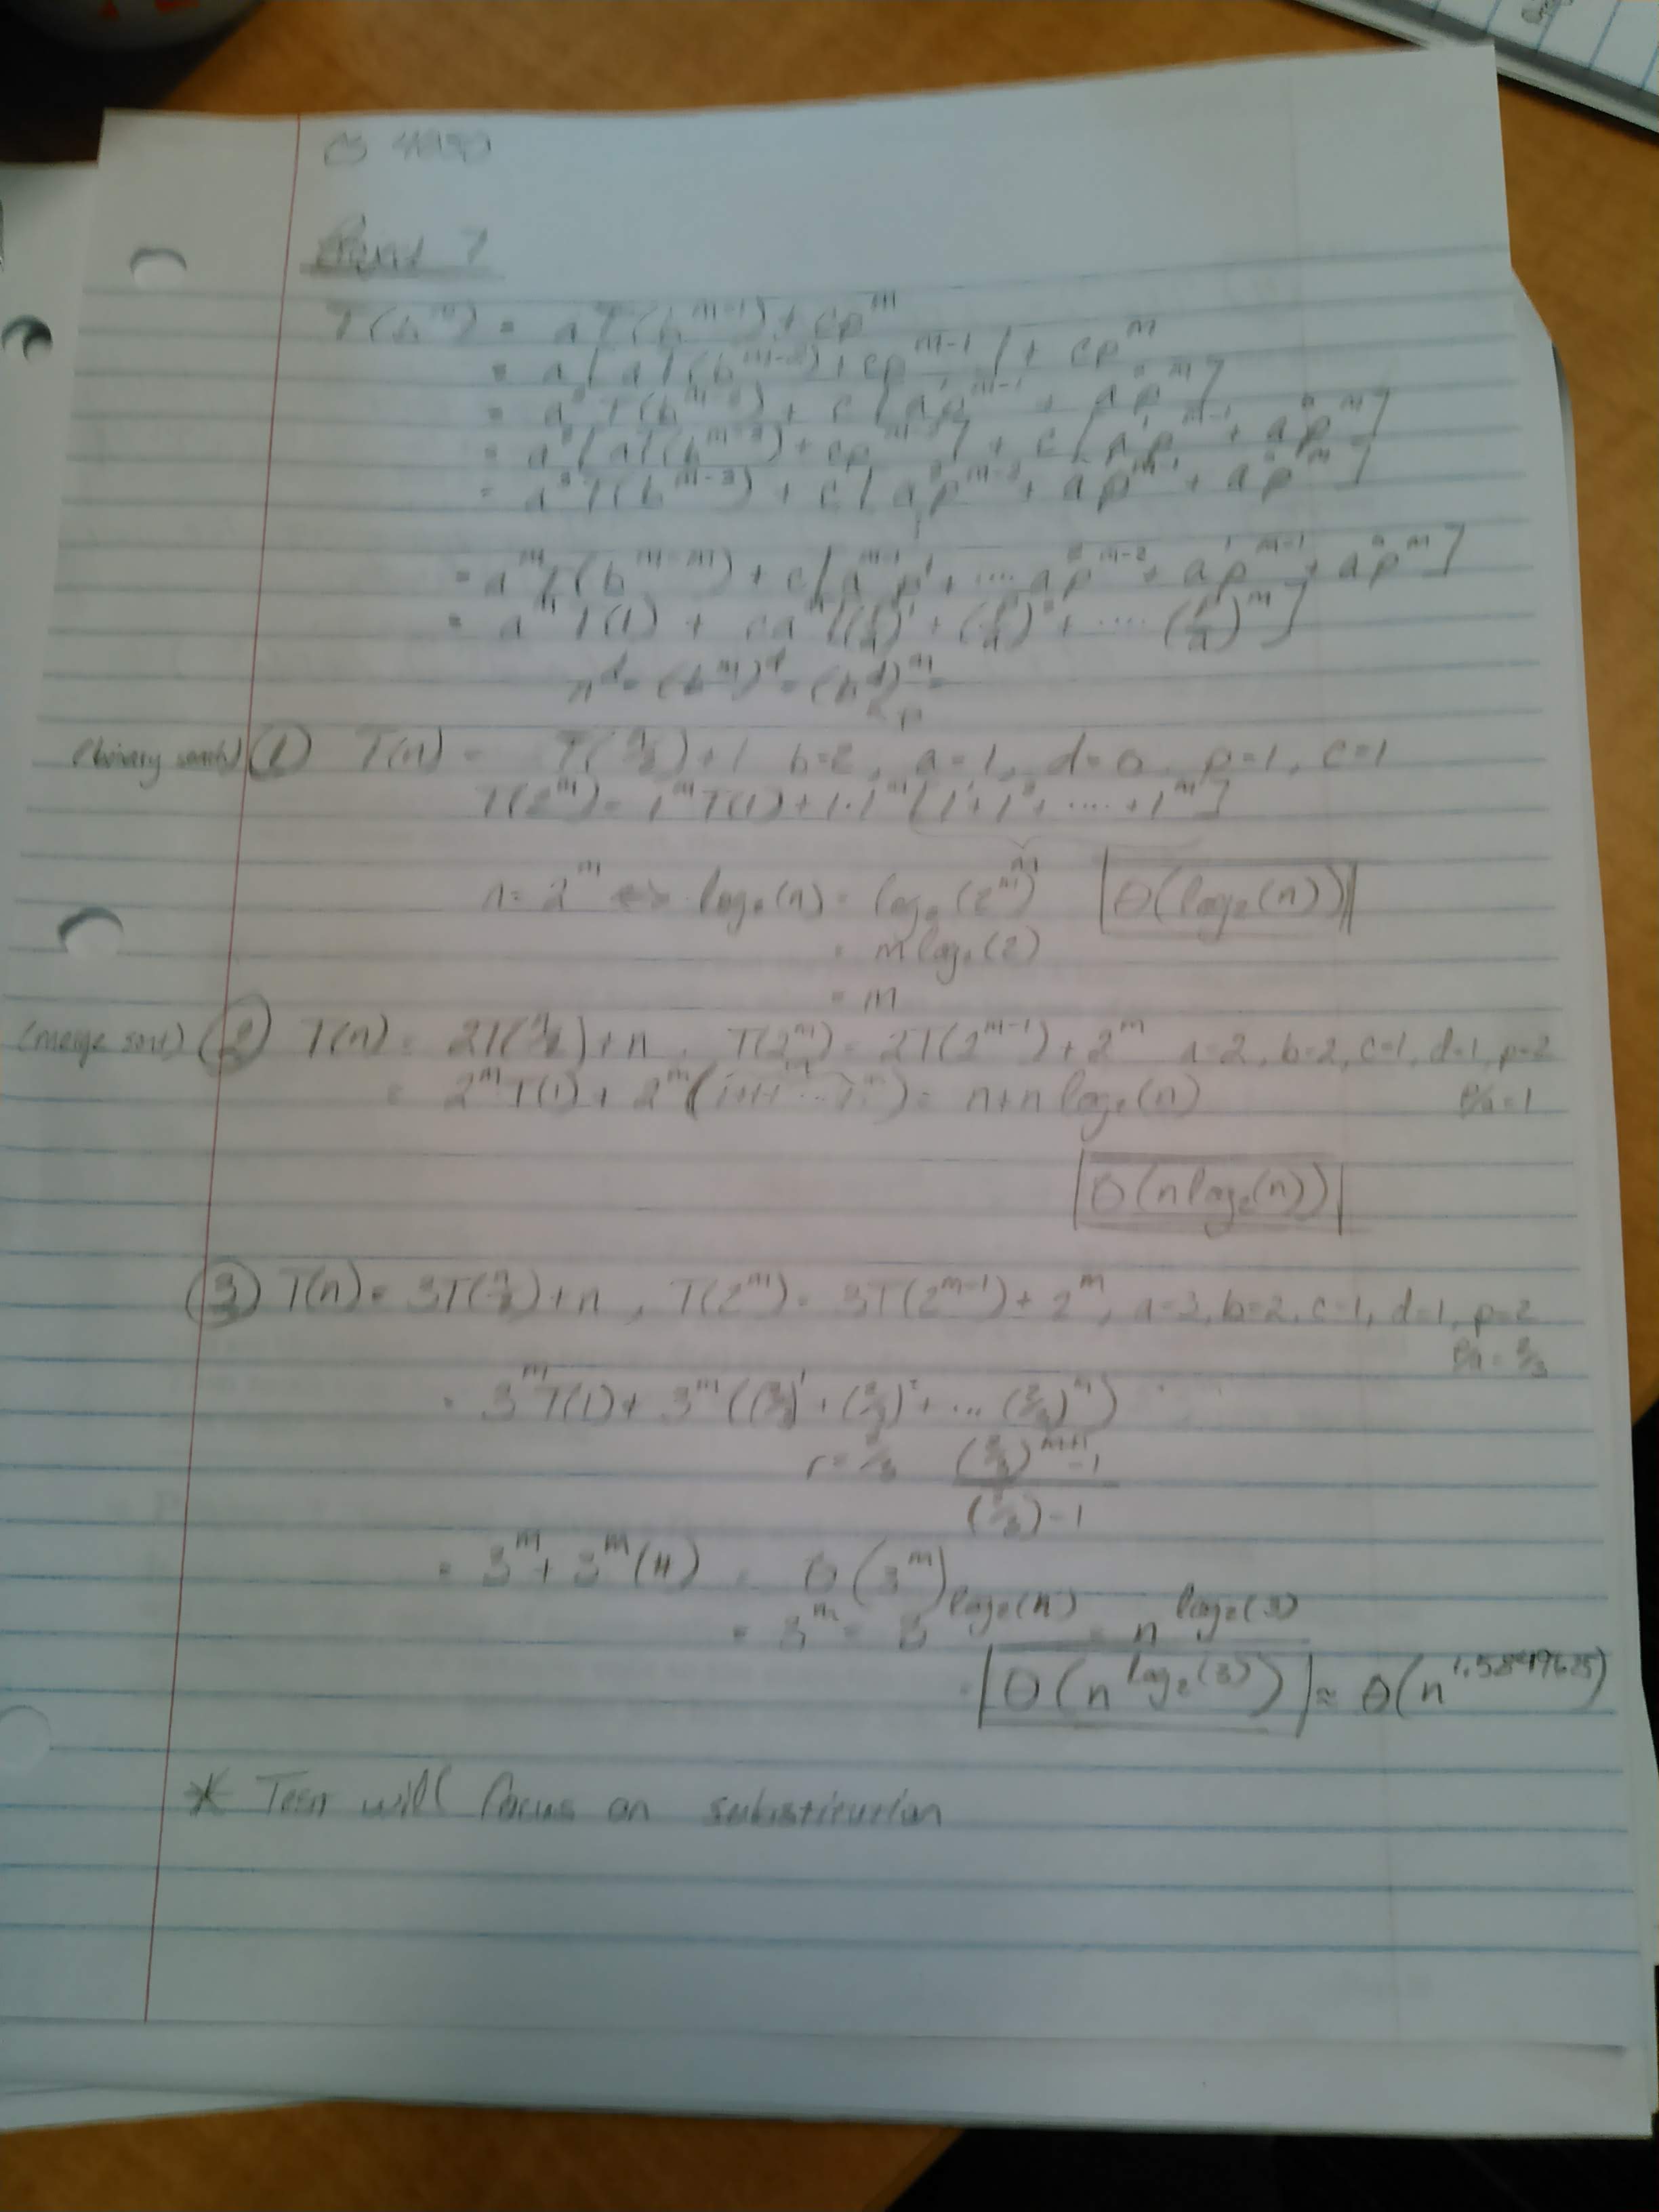 CS 4050
7
T(b^m) = aT(b^(m-1)) + cp^m
= a[aT(b^(m-2)) + cp^(m-1)] + cp^m
= a^2T(b^(m-2)) + c[a^1p^(m-1) + a^0p^m]
= a^2[aT(b^(m-3)) + cp^(m-2)] + c[a^1p^(m-1) + a^0p^m]
= a^3T(b^(m-3)) + c[a^2p^(m-2) + a^1p^(m-1) + a^0p^m]
= a^mT(b^(m-m)) + c[a^(m-1)p^1 + .... a^2p^(m-2) + a^1p^(m-1) + a^0p^m]
= a^mT(1) + ca^m[(p/a)^1 + (p/a)^2 + .... (p/a)^m]
n^d = (b^m)^d = (b^d)^m =
= p
(binary search) (1) T(n) = T(n/2) + 1 b=2, a=1, d=0, p=1, c=1
T(2^m) = 1^mT(1) + 1·1^m[1^1 + 1^2 + .... + 1^m]
m
n = 2^m <=> log2(n) = log2(2^m) Θ(log2(n))
= m log2(2)
= m
(merge sort) (2) T(n) = 2T(n/2) + n, T(2^m) = 2T(2^(m-1)) + 2^m a=2, b=2, c=1, d=1, p=2
= 2^mT(1) + 2^m(1+1+ ... 1^m) = n + n log2(n) p/a = 1
Θ(n log2(n))
(3) T(n) = 3T(n/2) + n, T(2^m) = 3T(2^(m-1)) + 2^m, a=3, b=2, c=1, d=1, p=2
p/a = 2/3
= 3^mT(1) + 3^m((2/3)^1 + (2/3)^2 + ... (2/3)^m)
r = 2/3 ((2/3)^(m+1) - 1)/((2/3) - 1)
= 3^m + 3^m(#) = Θ(3^m)
= 3^m = 3^(log2(n)) = n^(log2(3))
Θ(n^(log2(3))) ≈ Θ(n^1.5849625)
* Test will focus on substitution